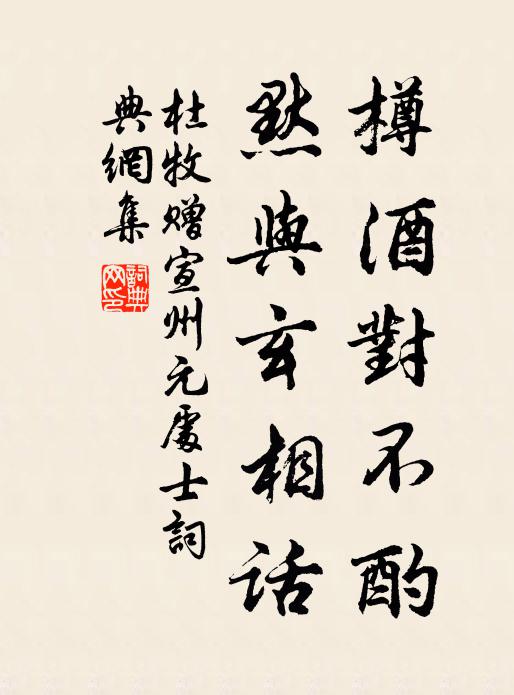 樽酒對不酌
默與玄相話
杜牧贈宣州元處士詞
典網集
詞典
网印